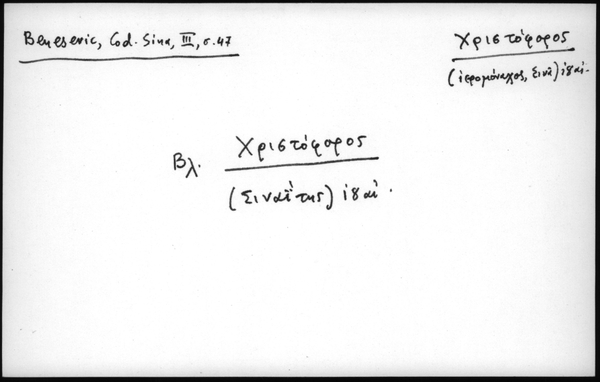 Benesevic, Cod. Sina, III, σ. 47
Χριστόφορος
(ἱερομόναχος, Σινᾶ) ιδ αἰ.
Βλ. Χριστόφορος
(Σιναΐτης) ιδ αἰ.